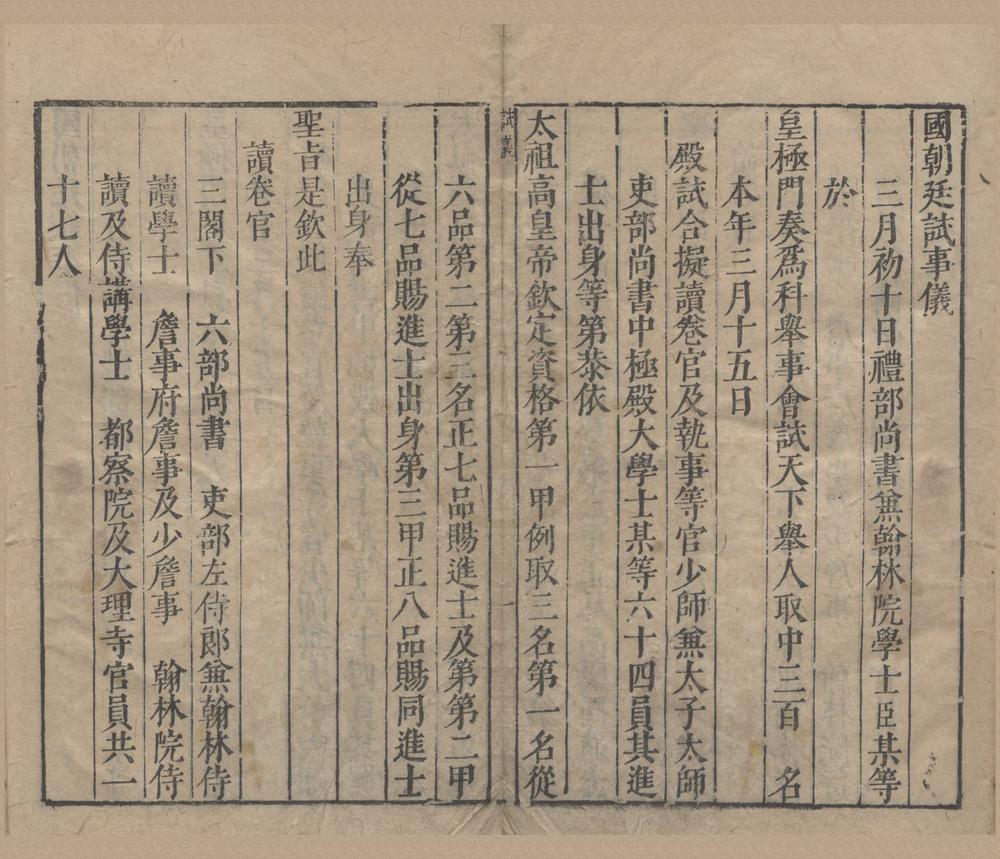 國朝廷試事儀
三月初十日禮部尚書兼翰林院學士臣某等
於
皇極門奏爲科舉事會試天下舉人取中三百　名
本年三月十五日
殿試合擬讀卷官及執事等官少師兼太子太師
吏部尚書中極殿大學士某等六十四員其進
士出身等第恭依
太祖高皇帝欽定資格第一甲例取三名第一名從
試義
一
六品第二第三名正七品賜進士及第第二甲
從七品賜進士出身第三甲正八品賜同進士
出身奉
聖旨是欽此
讀卷官
三閣下　六部尚書　吏部左侍郎兼翰林侍
讀學士　詹事府詹事及少詹事　翰林院侍
讀及侍講學士　都察院及大理寺官員共一
十七人